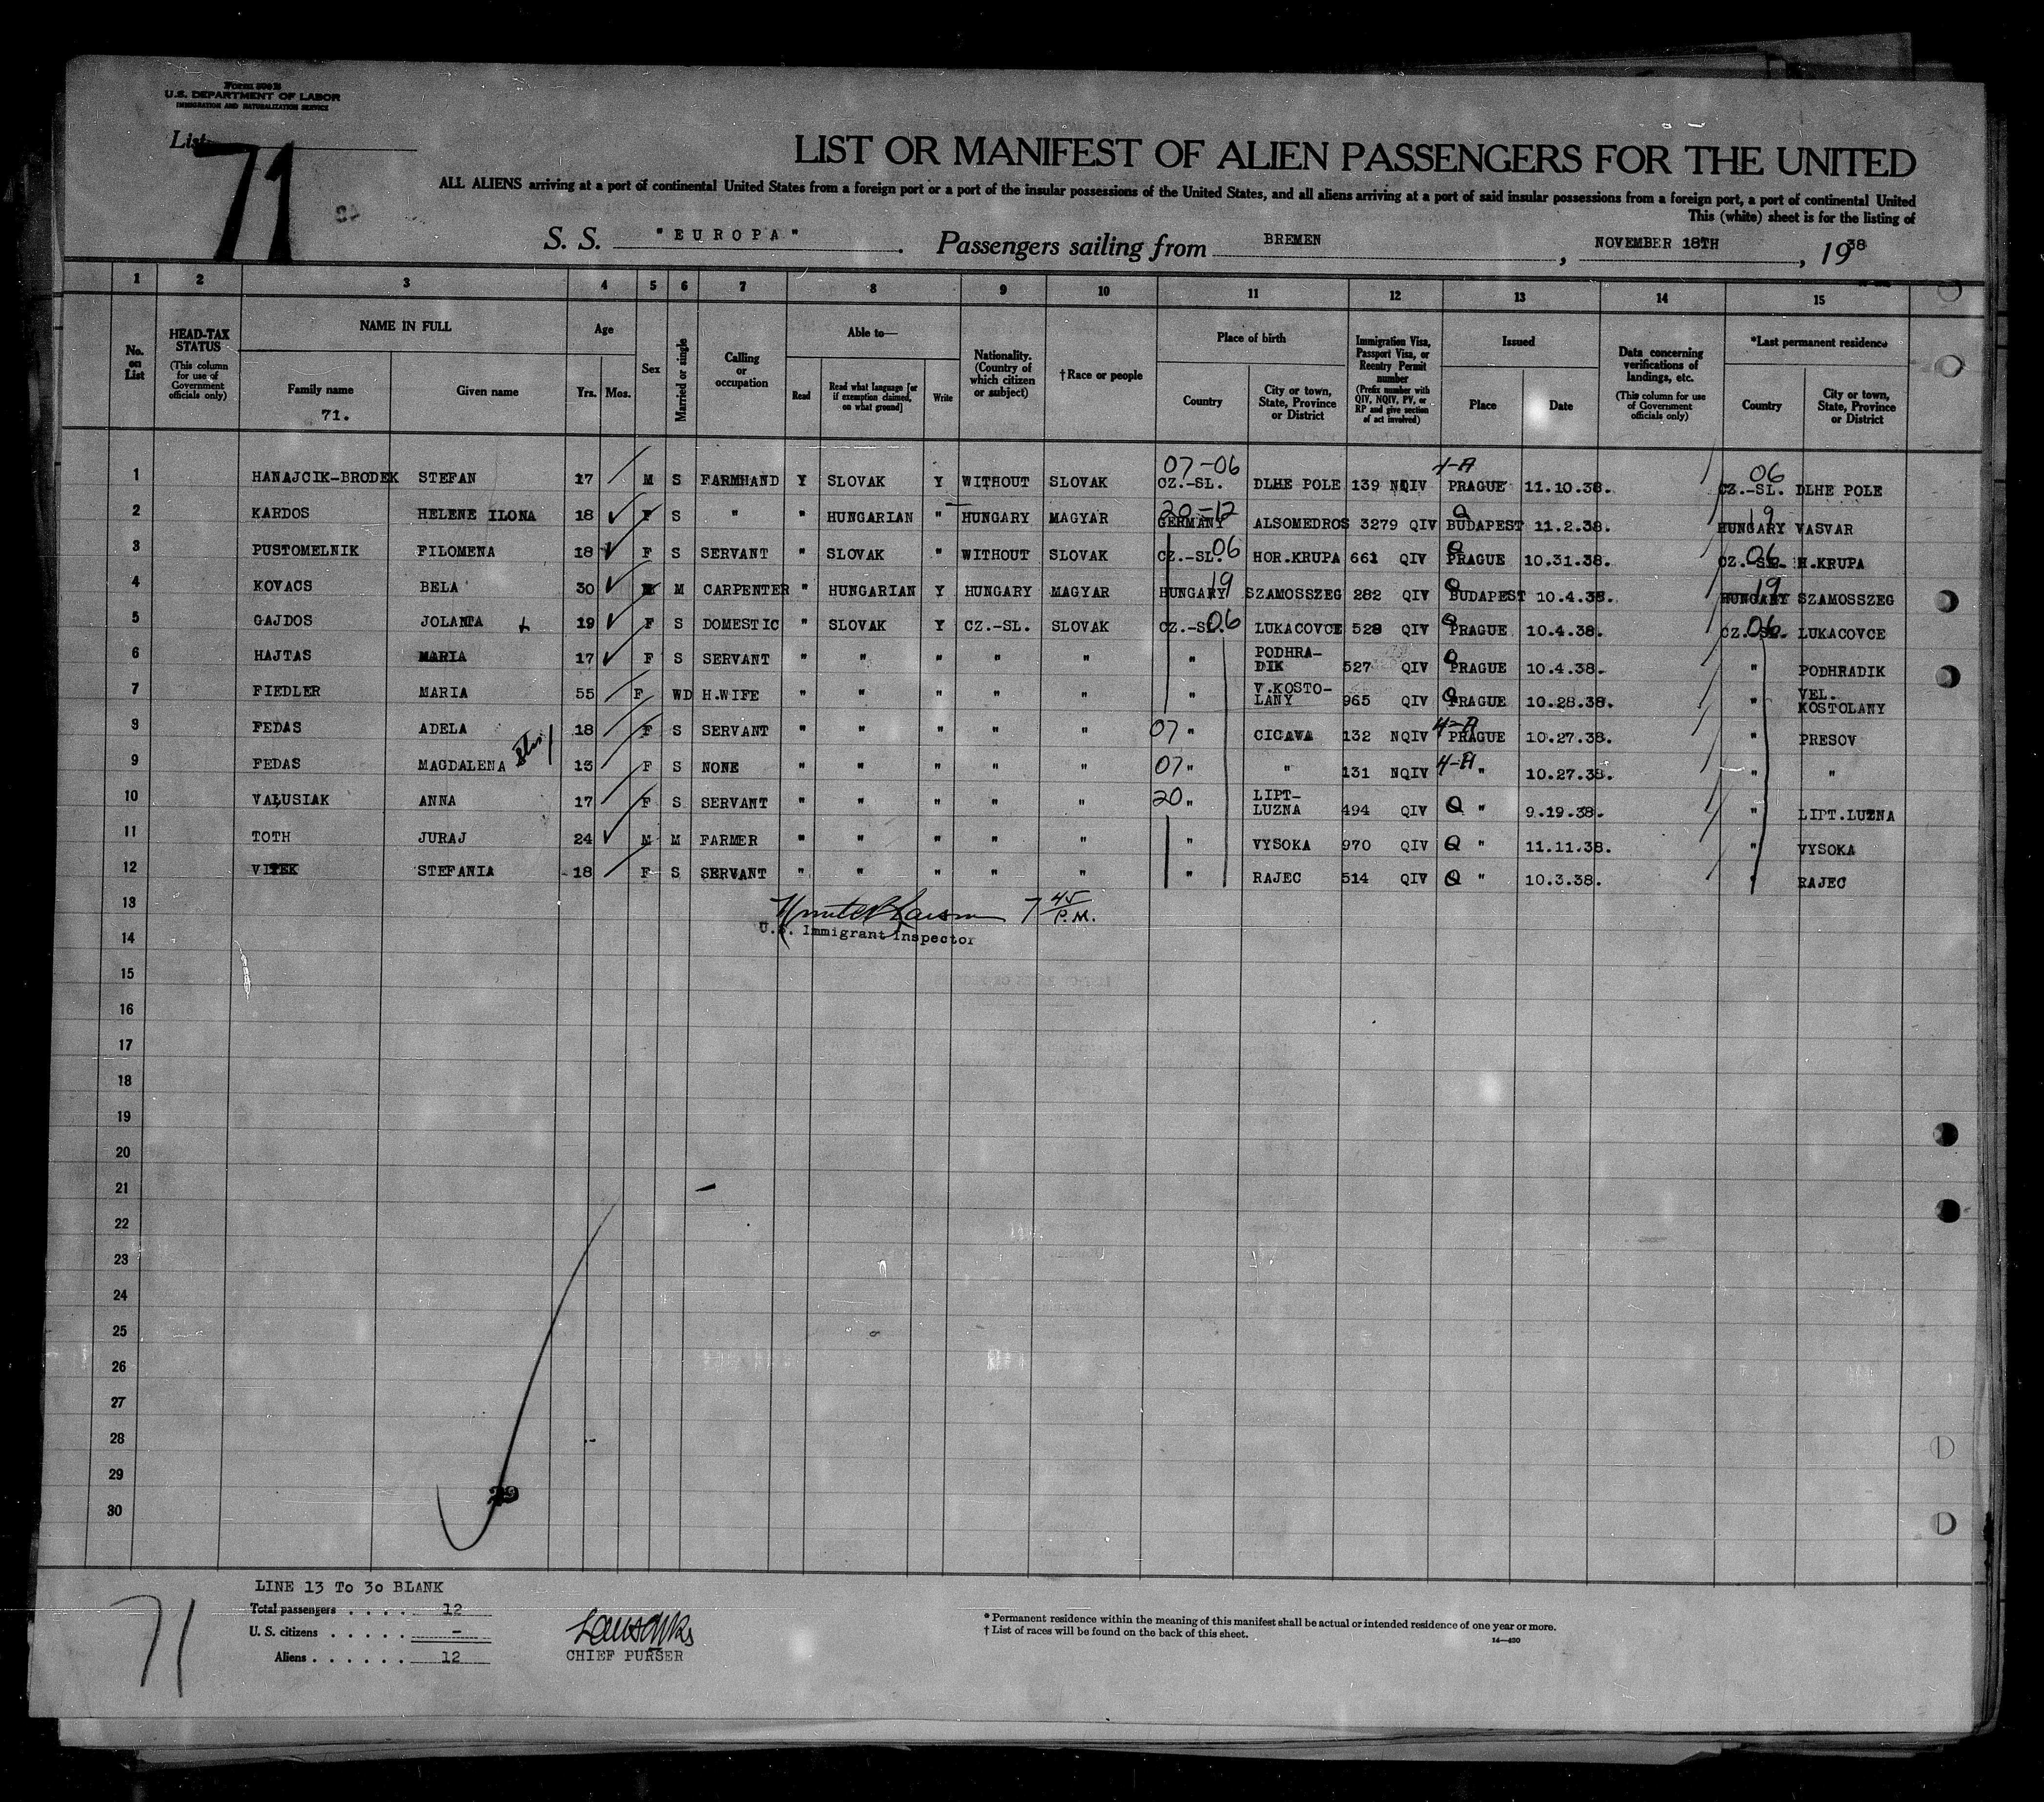 Form 500 B
U.S. DEPARTMENT OF LABOR
IMMIGRATION AND NATURALIZATION SERVICE
List
71
LIST OR MANIFEST OF ALIEN PASSENGERS FOR THE UNITED
ALL ALIENS arriving at a port of continental United States from a foreign port or a port of the insular possessions of the United States, and all aliens arriving at a port of said insular possessions from a foreign port, a port of continental United
This (white) sheet is for the listing of
S. S. "EUROPA" . Passengers sailing from BREMEN , NOVEMBER 18TH , 1938
1 2 3 4 5 6 7 8 9 10 11 12 13 14 15
No. on List
HEAD-TAX STATUS (This column for use of Government officials only)
NAME IN FULL
Family name
71.
Given name
Age
Yrs. Mos.
Sex
Married or single
Calling or occupation
Able to—
Read
Read what language [or if exemption claimed, on what ground]
Write
Nationality. (Country of which citizen or subject)
†Race or people
Place of birth
Country
City or town, State, Province or District
Immigration Visa, Passport Visa, or Reentry Permit number (Prefix number with QIV, NQIV, PV, or RP and give section of act involved)
Issued
Place
Date
Data concerning verifications of landings, etc. (This column for use of Government officials only)
*Last permanent residence
Country
City or town, State, Province or District
07-06 4-A 06
1 HANAJCIK-BRODEK STEFAN 17 M S FARMHAND Y SLOVAK Y WITHOUT SLOVAK CZ.-SL. DLHE POLE 139 NQIV PRAGUE 11.10.38. CZ.-SL. DLHE POLE
20-12 Q 19
2 KARDOS HELENE ILONA 18 F S " " HUNGARIAN " HUNGARY MAGYAR GERMANY ALSOMEDROS 3279 QIV BUDAPEST 11.2.38. HUNGARY VASVAR
3 PUSTOMELNIK FILOMENA 18 F S SERVANT " SLOVAK " WITHOUT SLOVAK CZ.-SL. 06 HOR.KRUPA 661 QIV Q PRAGUE 10.31.38. CZ.-SL. 06 H.KRUPA
4 KOVACS BELA 30 M M CARPENTER " HUNGARIAN Y HUNGARY MAGYAR HUNGARY 19 SZAMOSSZEG 282 QIV Q BUDAPEST 10.4.38. HUNGARY 19 SZAMOSSZEG
5 GAJDOS JOLANTA 19 F S DOMESTIC " SLOVAK Y CZ.-SL. SLOVAK CZ.-SL. 06 LUKACOVCE 528 QIV Q PRAGUE 10.4.38. CZ.-SL. 06 LUKACOVCE
6 HAJTAS MARIA 17 F S SERVANT " " " " " " PODHRA-DIK 527 QIV Q PRAGUE 10.4.38. " PODHRADIK
7 FIEDLER MARIA 55 F WD H.WIFE " " " " " " V.KOSTO-LANY 965 QIV Q PRAGUE 10.28.38. " VEL. KOSTOLANY
8 FEDAS ADELA 18 F S SERVANT " " " " " 07 " CICAVA 132 NQIV 4-A PRAGUE 10.27.38. " PRESOV
9 FEDAS MAGDALENA 13 F S NONE " " " " " 07 " " 131 NQIV 4-A " 10.27.38. " "
10 VALUSIAK ANNA 17 F S SERVANT " " " " " 20 " LIPT-LUZNA 494 QIV Q " 9.19.38. " LIPT.LUZNA
11 TOTH JURAJ 24 M M FARMER " " " " " " VYSOKA 970 QIV Q " 11.11.38. " VYSOKA
12 VITEK STEFANIA 18 F S SERVANT " " " " " " RAJEC 514 QIV Q " 10.3.38. " RAJEC
13 7 45 P.M.
U.S. Immigrant Inspector
14
15
16
17
18
19
20
21
22
23
24
25
26
27
28
29
30
29
71
LINE 13 TO 30 BLANK
Total passengers . . . . 12
U. S. citizens . . . . . –
Aliens . . . . . . 12
CHIEF PURSER
* Permanent residence within the meaning of this manifest shall be actual or intended residence of one year or more.
† List of races will be found on the back of this sheet.
14—420